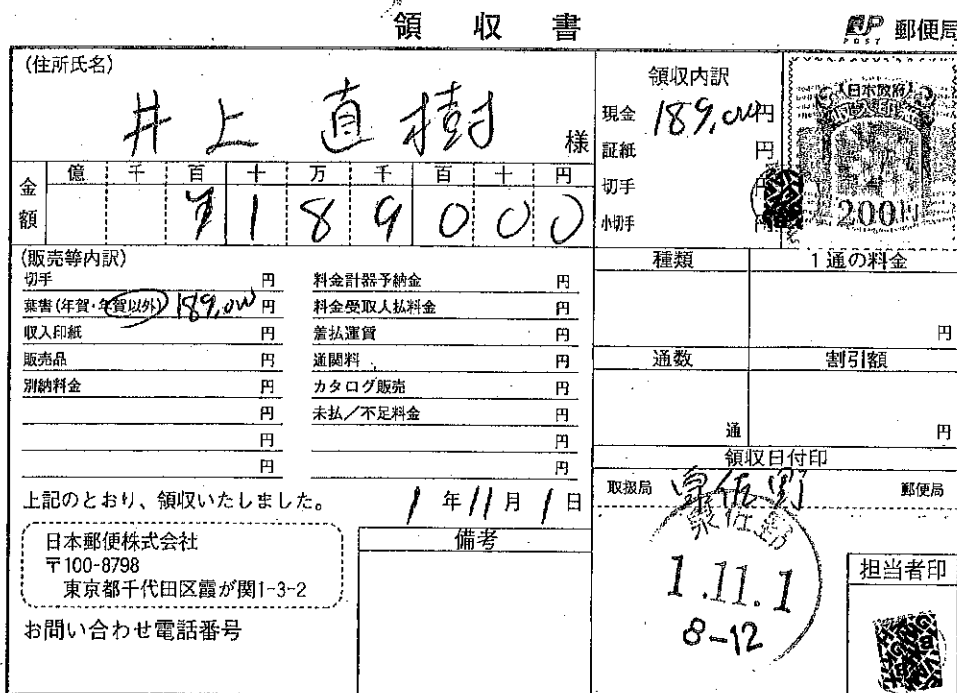 領収書
郵便局
(住所氏名)
井上 直樹 様
金額 億 千 百 十 万 千 百 十 円
¥189000
領収内訳
現金 189,000円
証紙 円
切手 円
小切手 円
日本政府
200円
(販売等内訳)
切手 円
葉書(年賀・年賀以外) 189,000円
収入印紙 円
販売品 円
別納料金 円
円
円
円
料金計器予納金 円
料金受取人払料金 円
着払運賃 円
通関料 円
カタログ販売 円
未払/不足料金 円
円
円
種類 1通の料金
円
通数 割引額
通 円
領収日付印
取扱局 泉佐野 郵便局
泉佐野
1.11.1
8-12
担当者印
上記のとおり、領収いたしました。 1年11月1日
日本郵便株式会社
〒100-8798
東京都千代田区霞が関1-3-2
お問い合わせ電話番号
備考